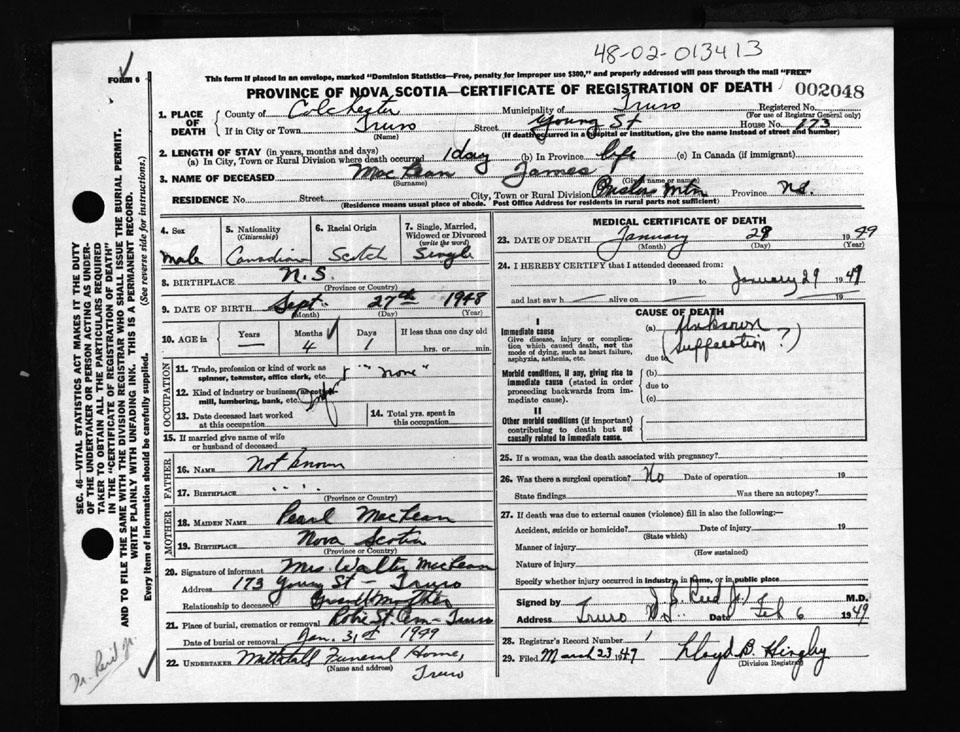 48-02-013413
FORM 6
This form if placed in an envelope, marked "Dominion Statistics—Free, penalty for improper use $300," and properly addressed will pass through the mail "FREE"
PROVINCE OF NOVA SCOTIA—CERTIFICATE OF REGISTRATION OF DEATH 002048
1. PLACE OF DEATH
County of Colchester Municipality of Truro Registered No.
(For use of Registrar General only)
If in City or Town Truro Street Young St House No. 173
(Name) (If death occurred in a hospital or institution, give the name instead of street and number)
2. LENGTH OF STAY (in years, months and days)
(a) In City, Town or Rural Division where death occurred 1 day (b) In Province life (c) In Canada (if immigrant)
3. NAME OF DECEASED MacLean James
(Surname) (Given name or names)
RESIDENCE No. Street City, Town or Rural Division Onslow Mtn Province N.S.
(Residence means usual place of abode. Post Office Address for residents in rural parts not sufficient)
4. Sex
male
5. Nationality
(Citizenship)
Canadian
6. Racial Origin
Scotch
7. Single, Married, Widowed or Divorced
(write the word)
Single
8. BIRTHPLACE N.S.
(Province or Country)
9. DATE OF BIRTH Sept. 27th 1948
(Month) (Day) (Year)
10. AGE in Years Months Days If less than one day old
— 4 1 hrs. or min.
OCCUPATION
11. Trade, profession or kind of work as spinner, teamster, office clerk, etc. "none"
12. Kind of industry or business, as
mill, lumbering, bank, etc.
13. Date deceased last worked at this occupation
14. Total yrs. spent in this occupation
15. If married give name of wife or husband of deceased
FATHER
16. NAME Not known
17. BIRTHPLACE " " "
(Province or Country)
MOTHER
18. MAIDEN NAME Pearl MacLean
19. BIRTHPLACE Nova Scotia
(Province or Country)
20. Signature of informant Mrs. Walter MacLean
Address 173 Young St - Truro
Relationship to deceased Grandmother
21. Place of burial, cremation or removal Robie St. Cem - Truro
Date of burial or removal Jan. 31st 1949
22. UNDERTAKER Mattatall Funeral Home,
(Name and address) Truro
MEDICAL CERTIFICATE OF DEATH
23. DATE OF DEATH January 28 1949
(Month) (Day) (Year)
24. I HEREBY CERTIFY that I attended deceased from
19 to January 29 1949
and last saw h alive on 19
CAUSE OF DEATH
I
Immediate cause (a) Unknown
Give disease, injury or complication which caused death, not the mode of dying, such as heart failure, asphyxia, asthenia, etc.
(suffocation?)
due to
Morbid conditions, if any, giving rise to immediate cause (stated in order proceeding backwards from immediate cause).
(b)
due to
(c)
II
Other morbid conditions (if important) contributing to death but not causally related to immediate cause.
25. If a woman, was the death associated with pregnancy?
26. Was there a surgical operation? No Date of operation 19
State findings Was there an autopsy?
27. If death was due to external causes (violence) fill in also the following:—
Accident, suicide or homicide? Date of injury 19
(State which)
Manner of injury
(How sustained)
Nature of injury
Specify whether injury occurred in industry, in home, or in public place
Signed by J. S. Reid Jr. M.D.
Address Truro N.S. Date Feb 6 1949
28. Registrar's Record Number 1
29. Filed March 23 1949 Lloyd B. Hingley
(Division Registrar)
SEC. 46—VITAL STATISTICS ACT MAKES IT THE DUTY
OF THE UNDERTAKER OR PERSON ACTING AS UNDER-
TAKER TO OBTAIN ALL THE PARTICULARS REQUIRED
IN THE "CERTIFICATE OF REGISTRATION OF DEATH"
AND TO FILE THE SAME WITH THE DIVISION REGISTRAR WHO SHALL ISSUE THE BURIAL PERMIT.
WRITE PLAINLY WITH UNFADING INK. THIS IS A PERMANENT RECORD.
Every item of information should be carefully supplied. (See reverse side for instructions.)
Dr. Reid Jr.